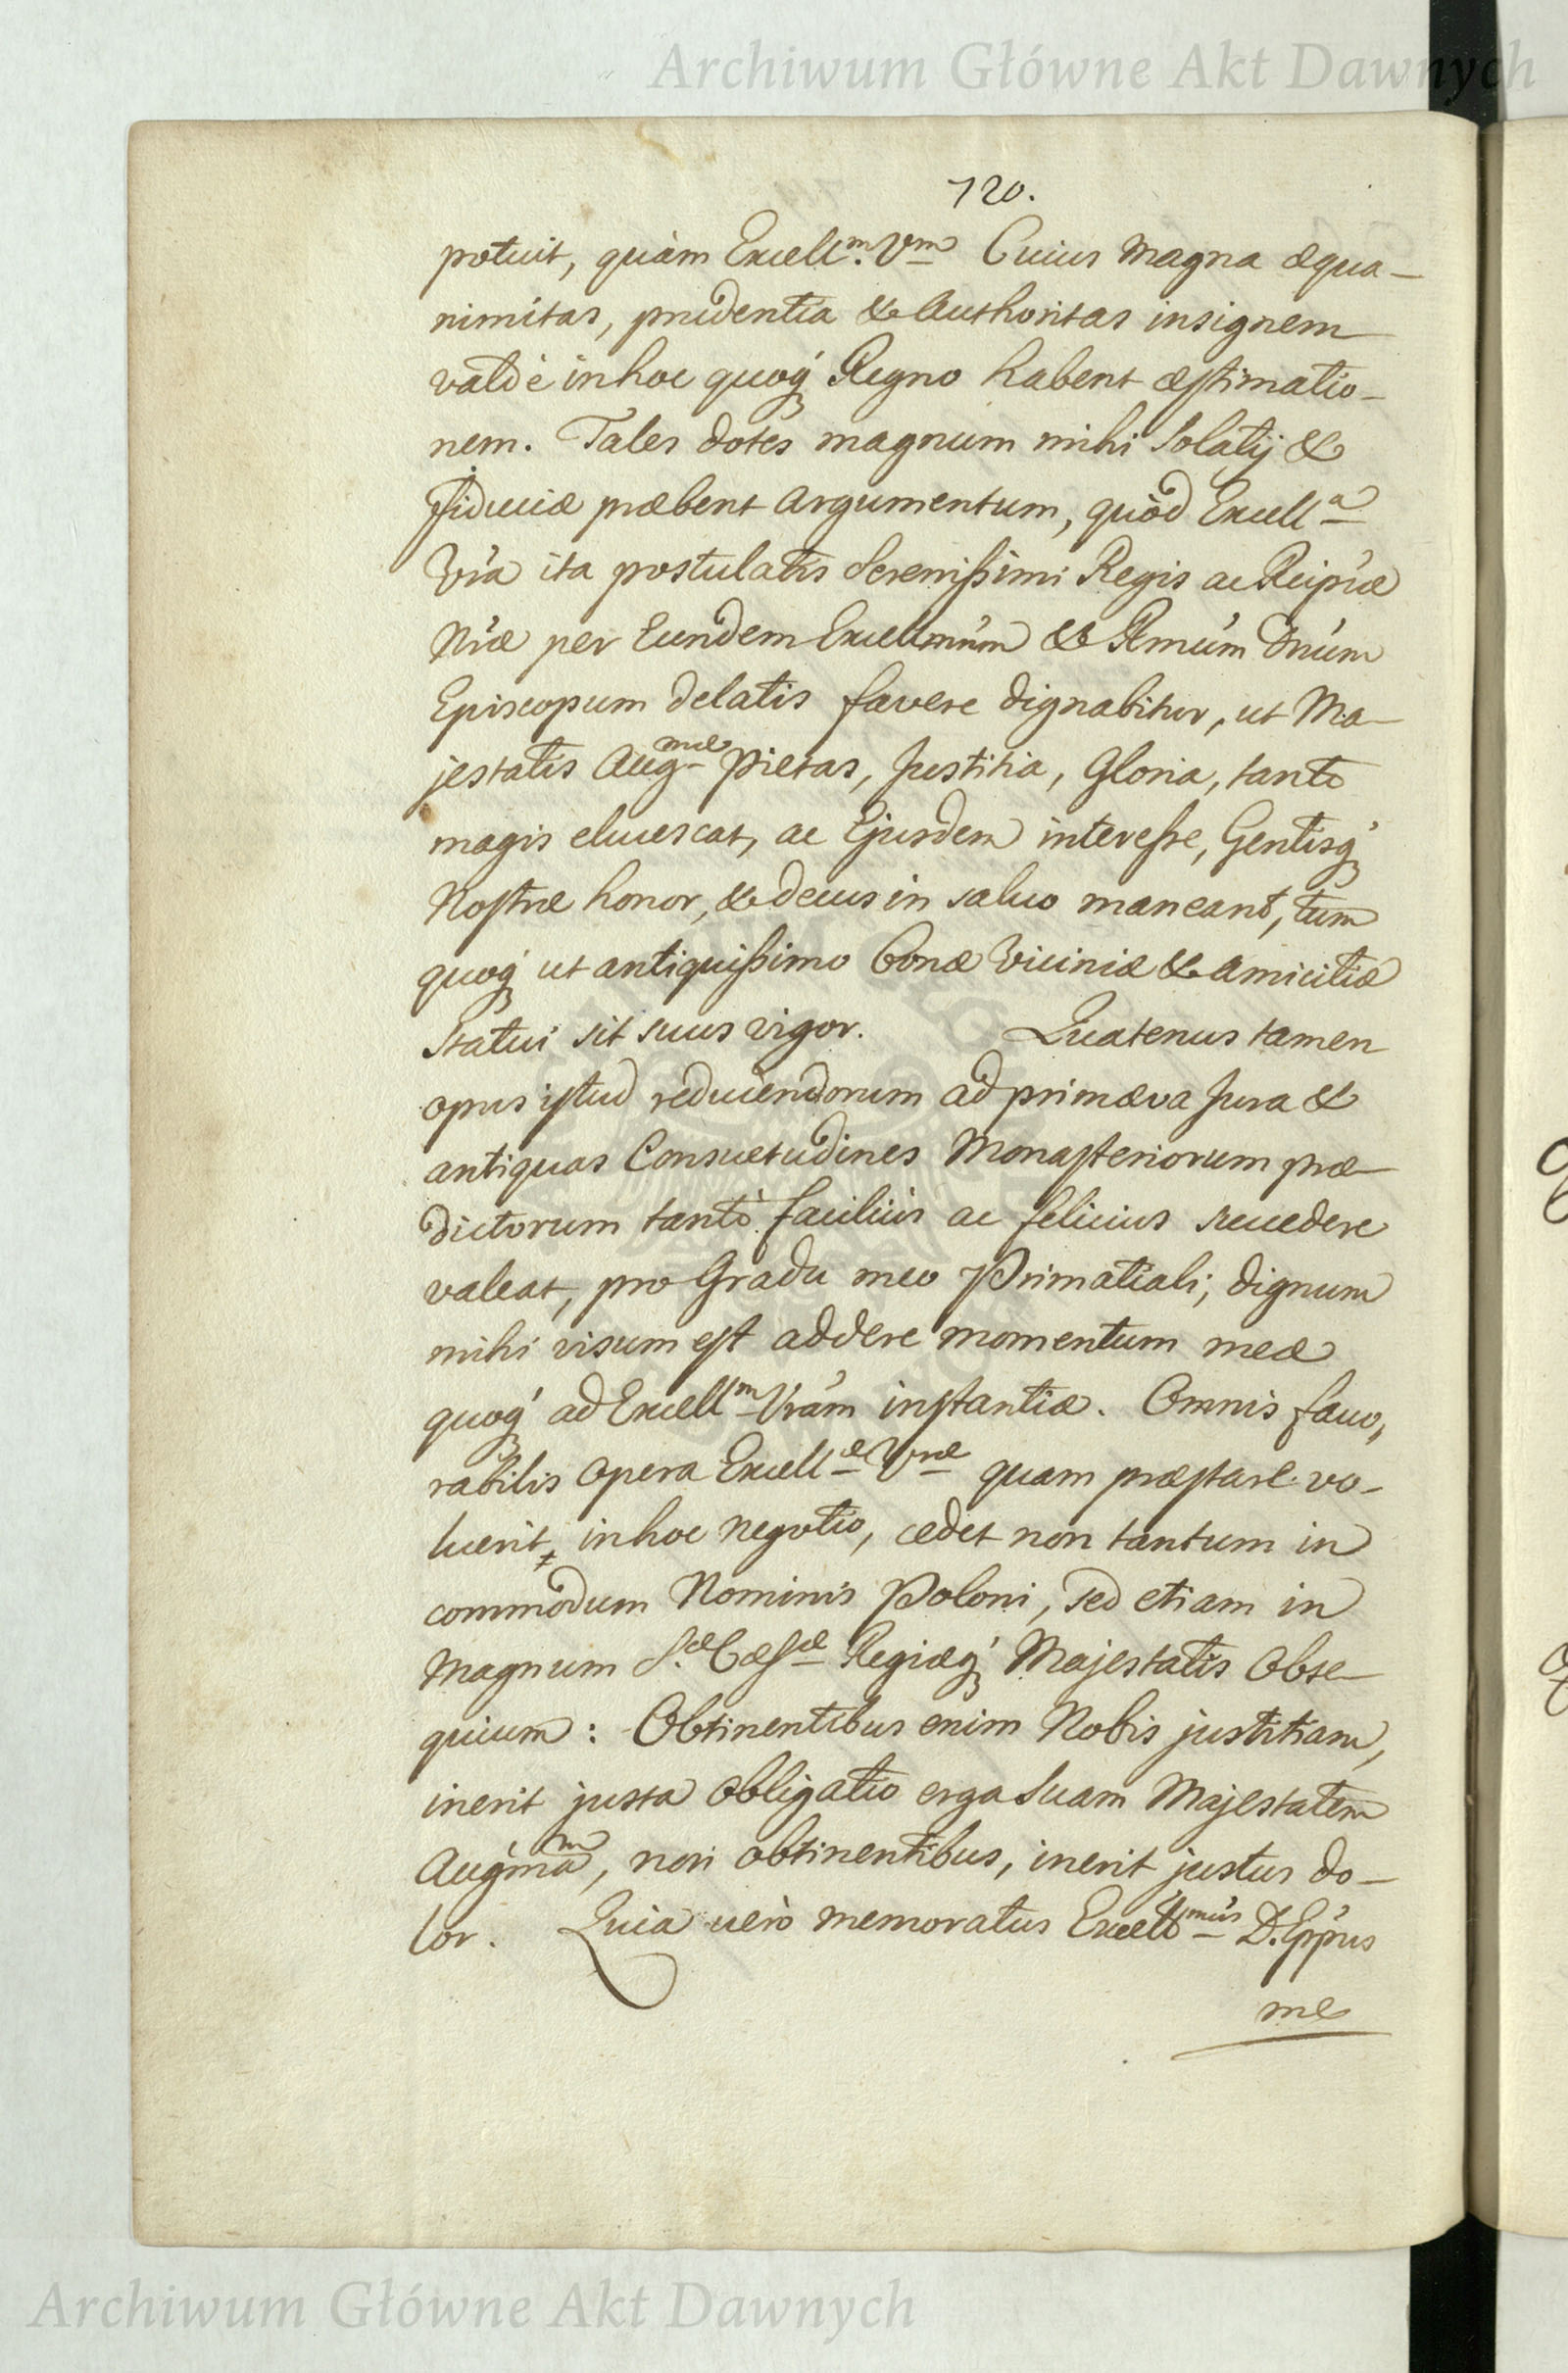 Archiwum Główne Akt Dawnych
120.
potuit, quàm Excell.m Vm̃ Cuius Magna æqua-
nimitas, prudentia & Authoritas insignem
valdè in hoc quoq́ Regno habent æstimatio-
nem. Tales dotes magnum mihi Solatij &
fiduciæ præbent argumentum, quòd Excella
Vr̃a ita postulatis Serenissimi Regis ac Reipr̃æ
Nr̃æ per Eundem Excellmum̃ & Rmum̃ Dnum̃
Episcopum delatis favere dignabitur, ut Ma-
jestatis Augmæ Pietas, Justitia, Gloria, tanto
magis elucescat, ac Ejusdem interesse, Gentisq́
Nostræ honor, & decus in saluo maneant, tum
quoq́ ut antiquissimo bonæ Viciniæ & Amicitiæ
Statui sit suus vigor. Quatenus tamen
opus istud reducendorum ad primæva Jura &
antiquas Consuetudines Monasteriorum præ-
dictorum tantò faciliùs ac felicius succedere
valeat, pro Gradu meo Primatiali, dignum
mihi visum est addere momentum meæ
quoq́ ad Excellm Vrám instantiæ. Omnis favo,
rabilis opera Excellæ Vræ quam præstare vo-
luerit, in hoc negotio, cedet non tantum in
commodum Nominis Poloni, sed etiam in
Magnum S.æ Cæsæ Regiæq́ Majestatis Obse-
quium: Obtinentibus enim Nobis justitiam,
inerit justa obligatio erga Suam Majestatem
Augmam, non obtinentibus, inerit justus do-
lor. Quia verò memoratus Excellmus D. Eppus
me
Archiwum Główne Akt Dawnych